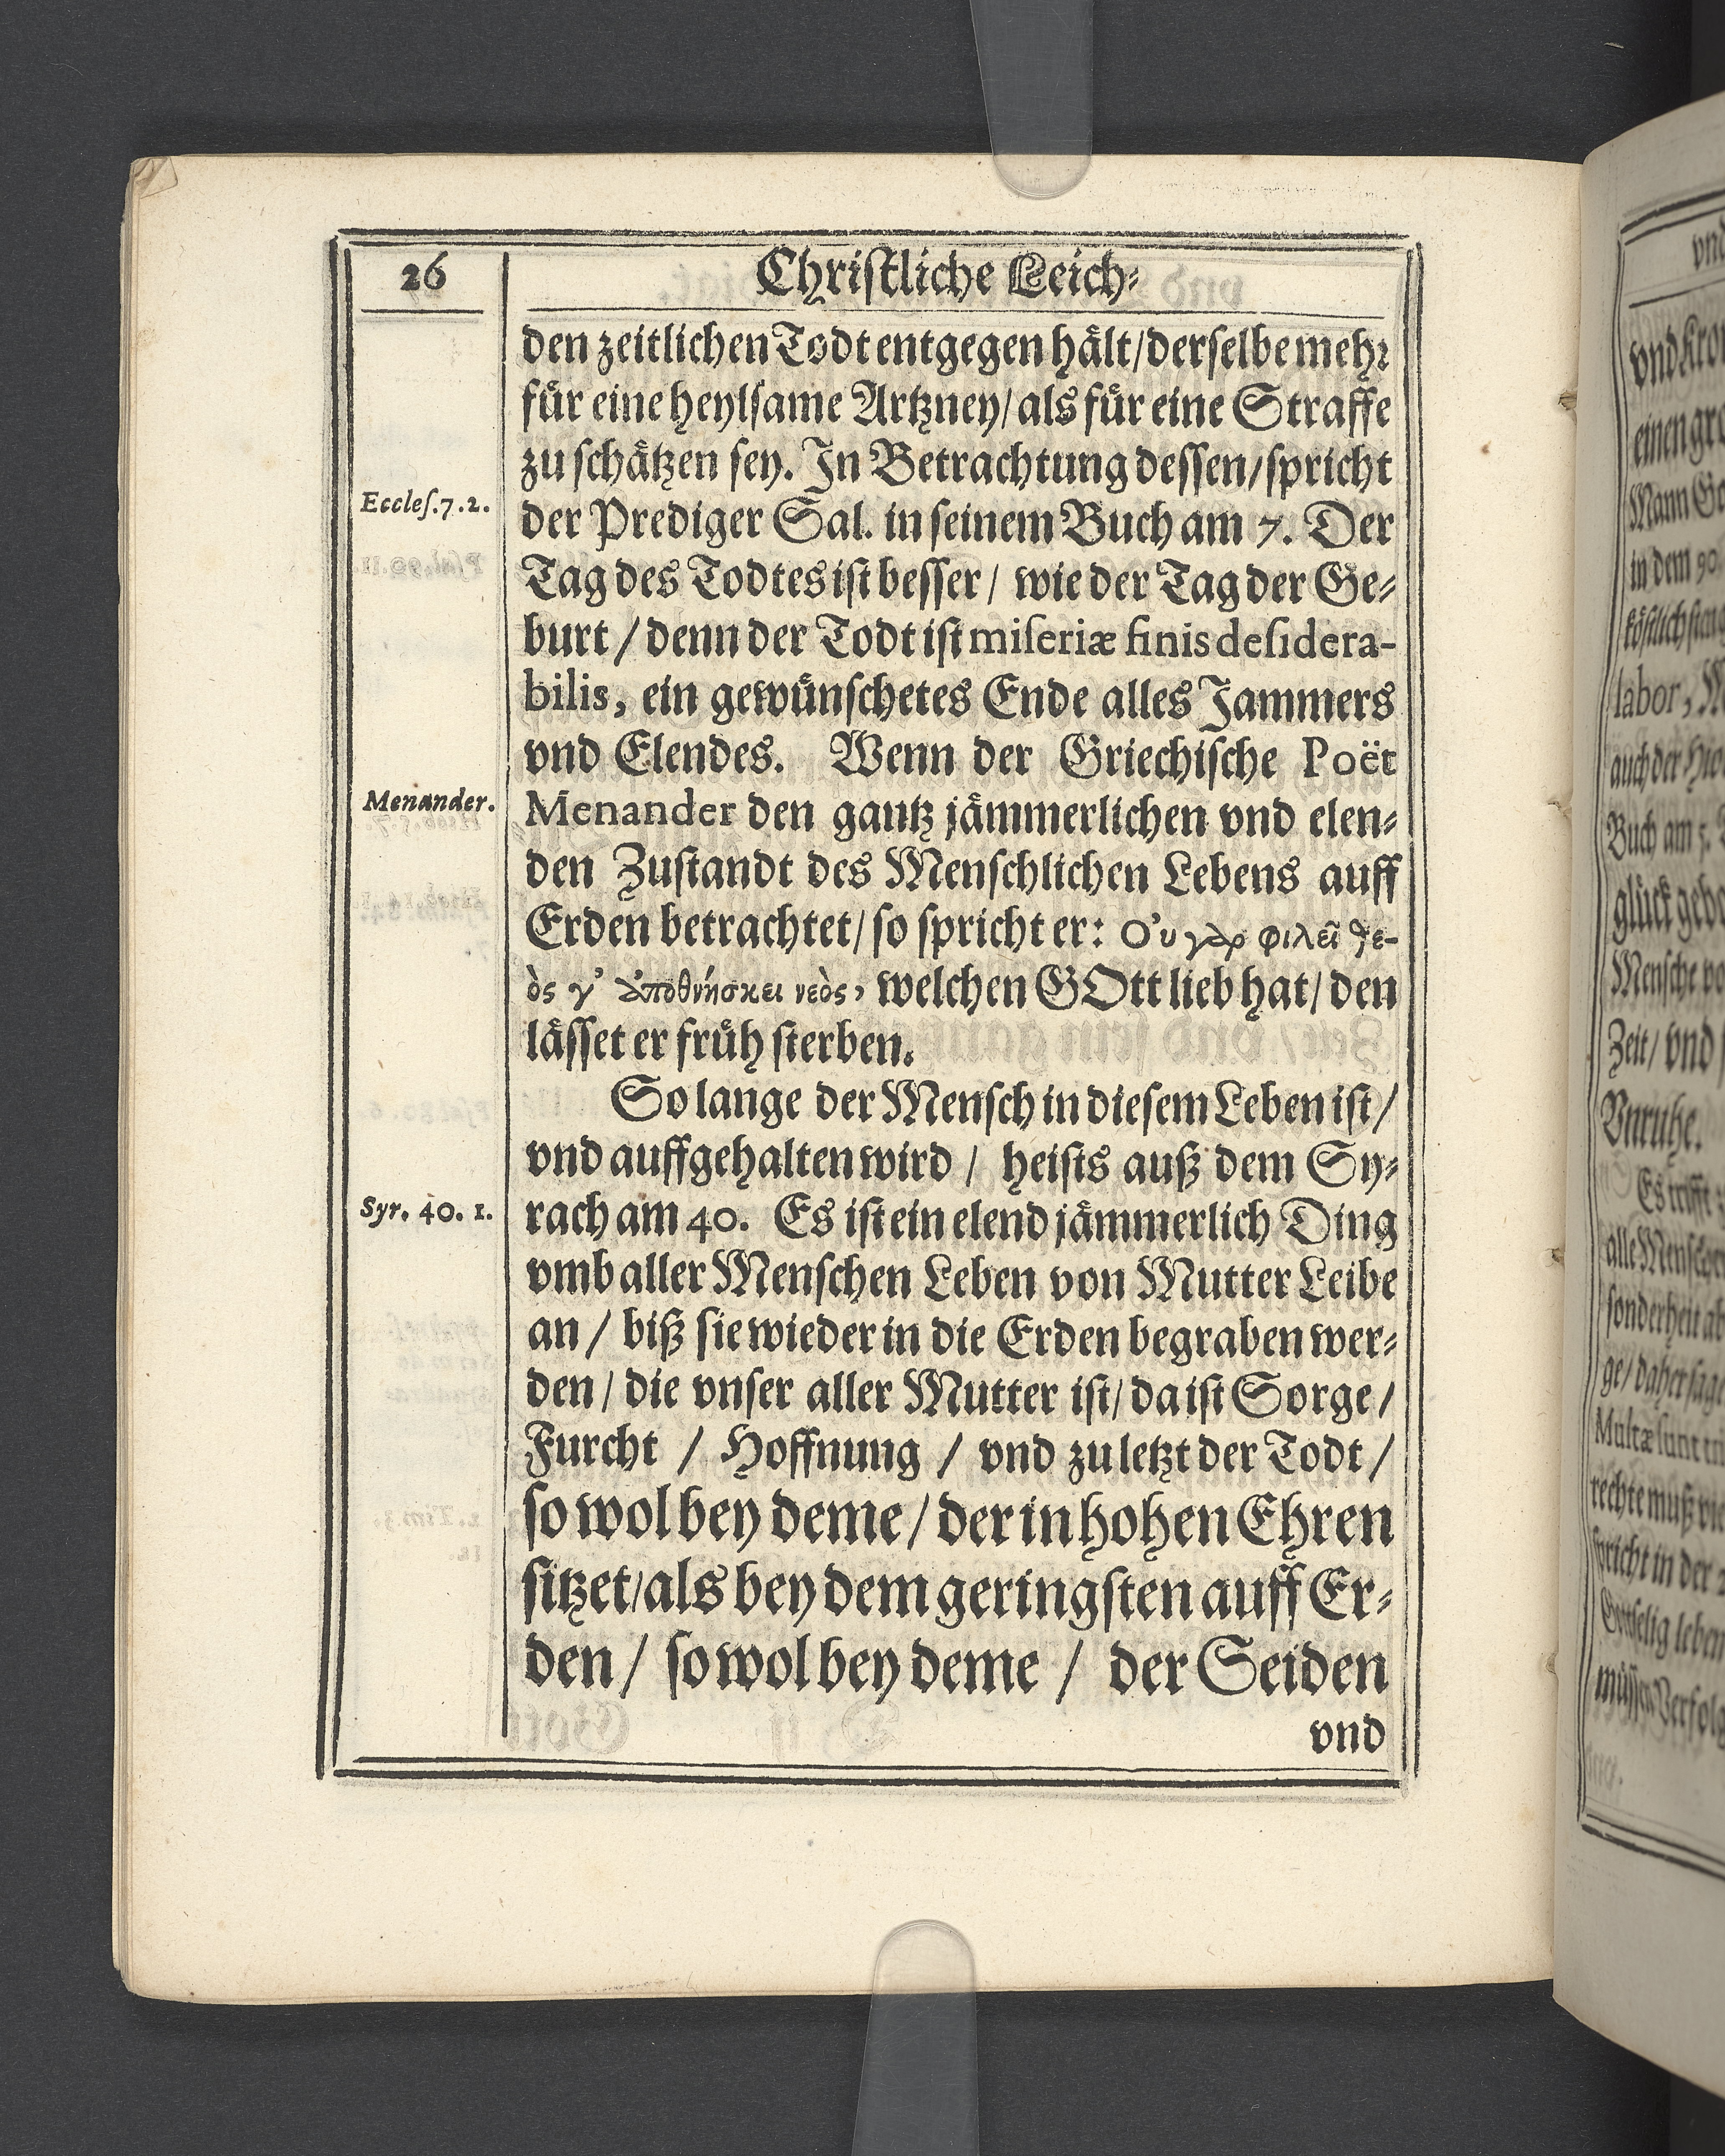 26
Chriſtliche Leich⸗
den zeitlichen Todt entgegen hält/ derſelbe mehr
für eine heylſame Artzney/ als für eine Straffe
zu ſchätzen ſey. In Betrachtung deſſen/ ſpricht
Eccleſ. 7. 2.
der Prediger Sal. in ſeinem Buch am 7. Der
Tag des Todtes iſt beſſer/ wie der Tag der Ge⸗
burt / denn der Todt iſt miſeriæ finis deſidera-
bilis, ein gewünſchetes Ende alles Jammers
vnd Elendes. Wenn der Griechiſche Poët
Menander.
Menander den gantz jämmerlichen vnd elen⸗
den Zuſtandt des Menſchlichen Lebens auff
Erden betrachtet/ ſo ſpricht er: Ο’υ γὰρ φιλεῖ θε-
ὸς γ’ ἀποθνήσκει νεὸς, welchen GOtt lieb hat/ den
läſſet er früh ſterben.
So lange der Menſch in dieſem Leben iſt/
vnd auffgehalten wird / heiſts auß dem Sy⸗
Syr. 40. 1.
rach am 40. Es iſt ein elend jämmerlich Ding
vmb aller Menſchen Leben von Mutter Leibe
an / biß ſie wieder in die Erden begraben wer⸗
den / die vnſer aller Mutter iſt/ da iſt Sorge /
Furcht / Hoffnung / vnd zu letzt der Todt /
ſo wol bey deme / der in hohen Ehren
ſitzet/ als bey dem geringſten auff Er⸗
den / ſo wol bey deme / der Seiden
vnd